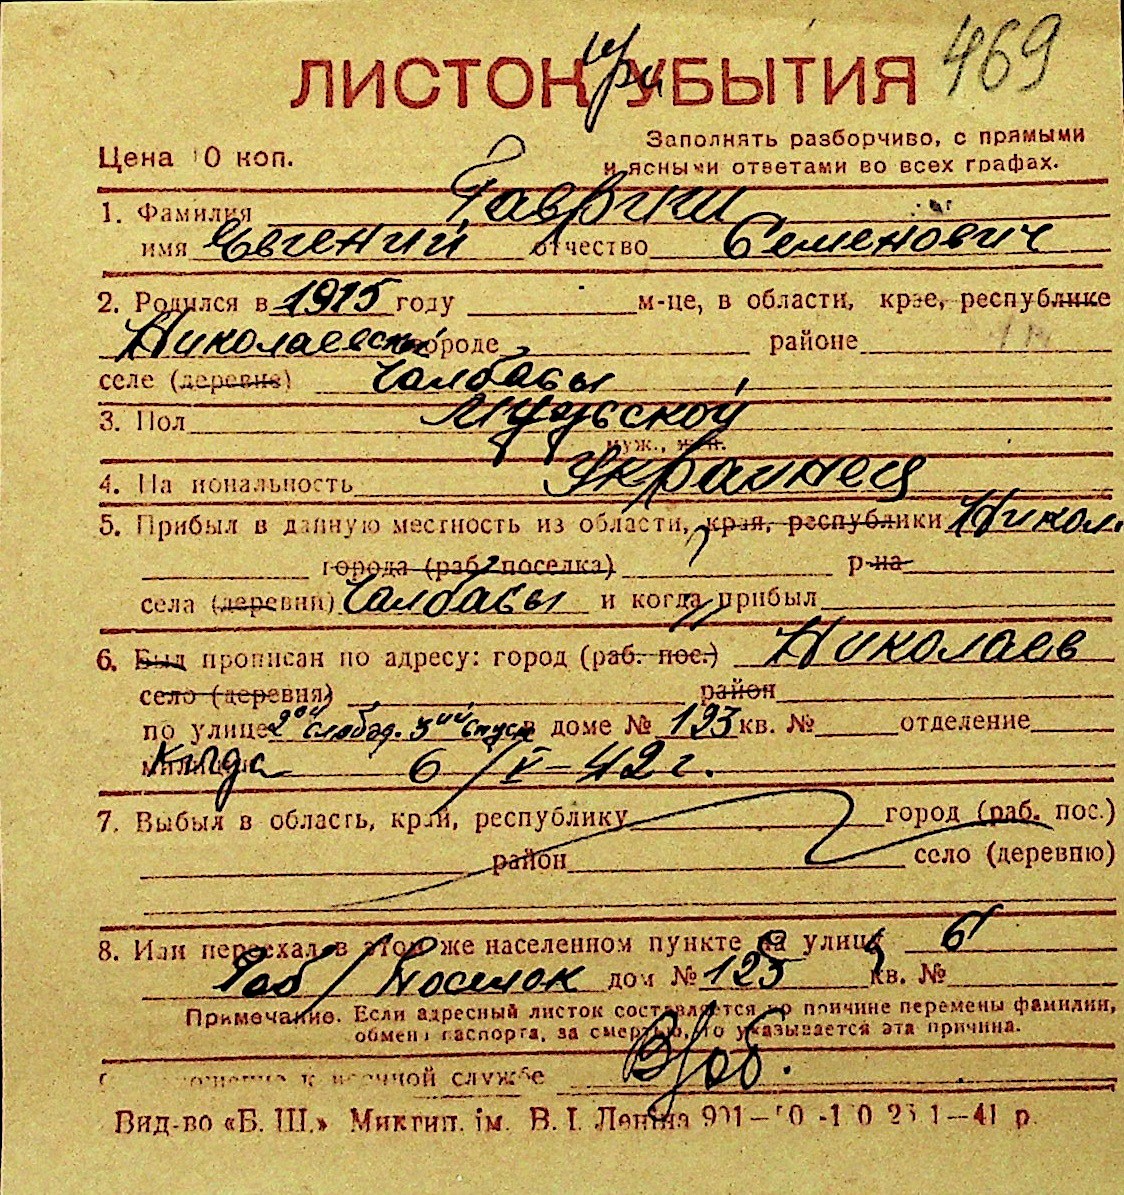 ЛИСТОК при УБЫТИЯ 469
Заполнять разборчиво, с прямыми
Цена 10 коп. и ясными ответами во всех графах.
1. Фамилия Гавриш
имя Евгений отчество Семенович
2. Родился в 1915 году м-це, в области, крае, республике
Николаевской городе районе
селе (деревне) Чалбасы
3. Пол Мужской
муж., жен.
4. Национальность Украинец
5. Прибыл в данную местность из области, края, республики Никол.
города (раб. поселка) р-на
села (деревни) Чалбасы и когда прибыл
6. Был прописан по адресу: город (раб. пос.) Николаев
село (деревня) район
по улице 2ой слобод. 3ий спуск в доме № 193 кв. № отделение
милиции Когда 6/V-42 г.
7. Выбыл в область, край, республику город (раб. пос.)
район село (деревню)
8. Или переехал в этом же населенном пункте на улицу 6
Раб/Поселок дом № 125 кв. №
Примечание. Если адресный листок составляется по причине перемены фамилии,
обмена паспорта, за смертью, то указывается эта причина.
к военной службе
Вид-во «Б. Ш.» Микгип. ім. В. І. Леніна 1—41 р.